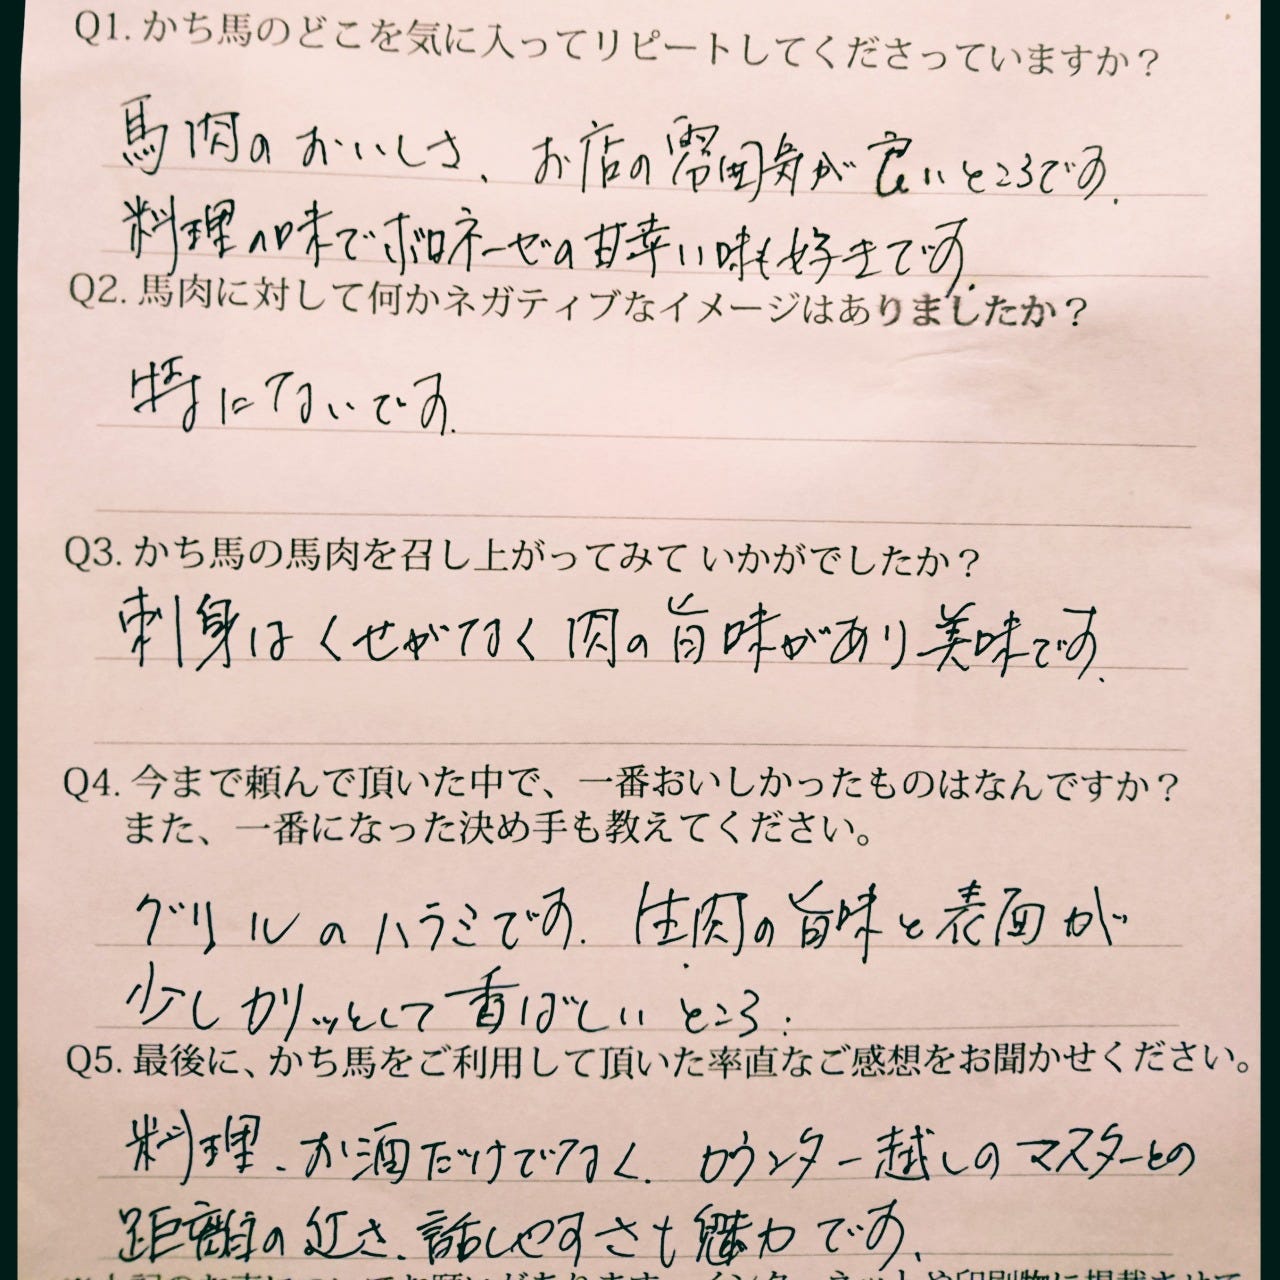 Q1. かち馬のどこを気に入ってリピートしてくださっていますか？
馬肉のおいしさ、お店の雰囲気が良いところです。
料理の味でボロネーゼの甘辛い味も好きです。
Q2. 馬肉に対して何かネガティブなイメージはありましたか？
特にないです。
Q3. かち馬の馬肉を召し上がってみて いかがでしたか？
刺身はくせがなく肉の旨味があり美味です。
Q4. 今まで頼んで頂いた中で、一番おいしかったものはなんですか？
また、一番になった決め手も教えてください。
グリルのハラミです。生肉の旨味と表面が
少しカリッとして香ばしいところ。
Q5. 最後に、かち馬をご利用して頂いた率直なご感想をお聞かせください。
料理、お酒だけでなく、カウンター越しのマスターとの
距離の近さ、話しやすさも魅力です。